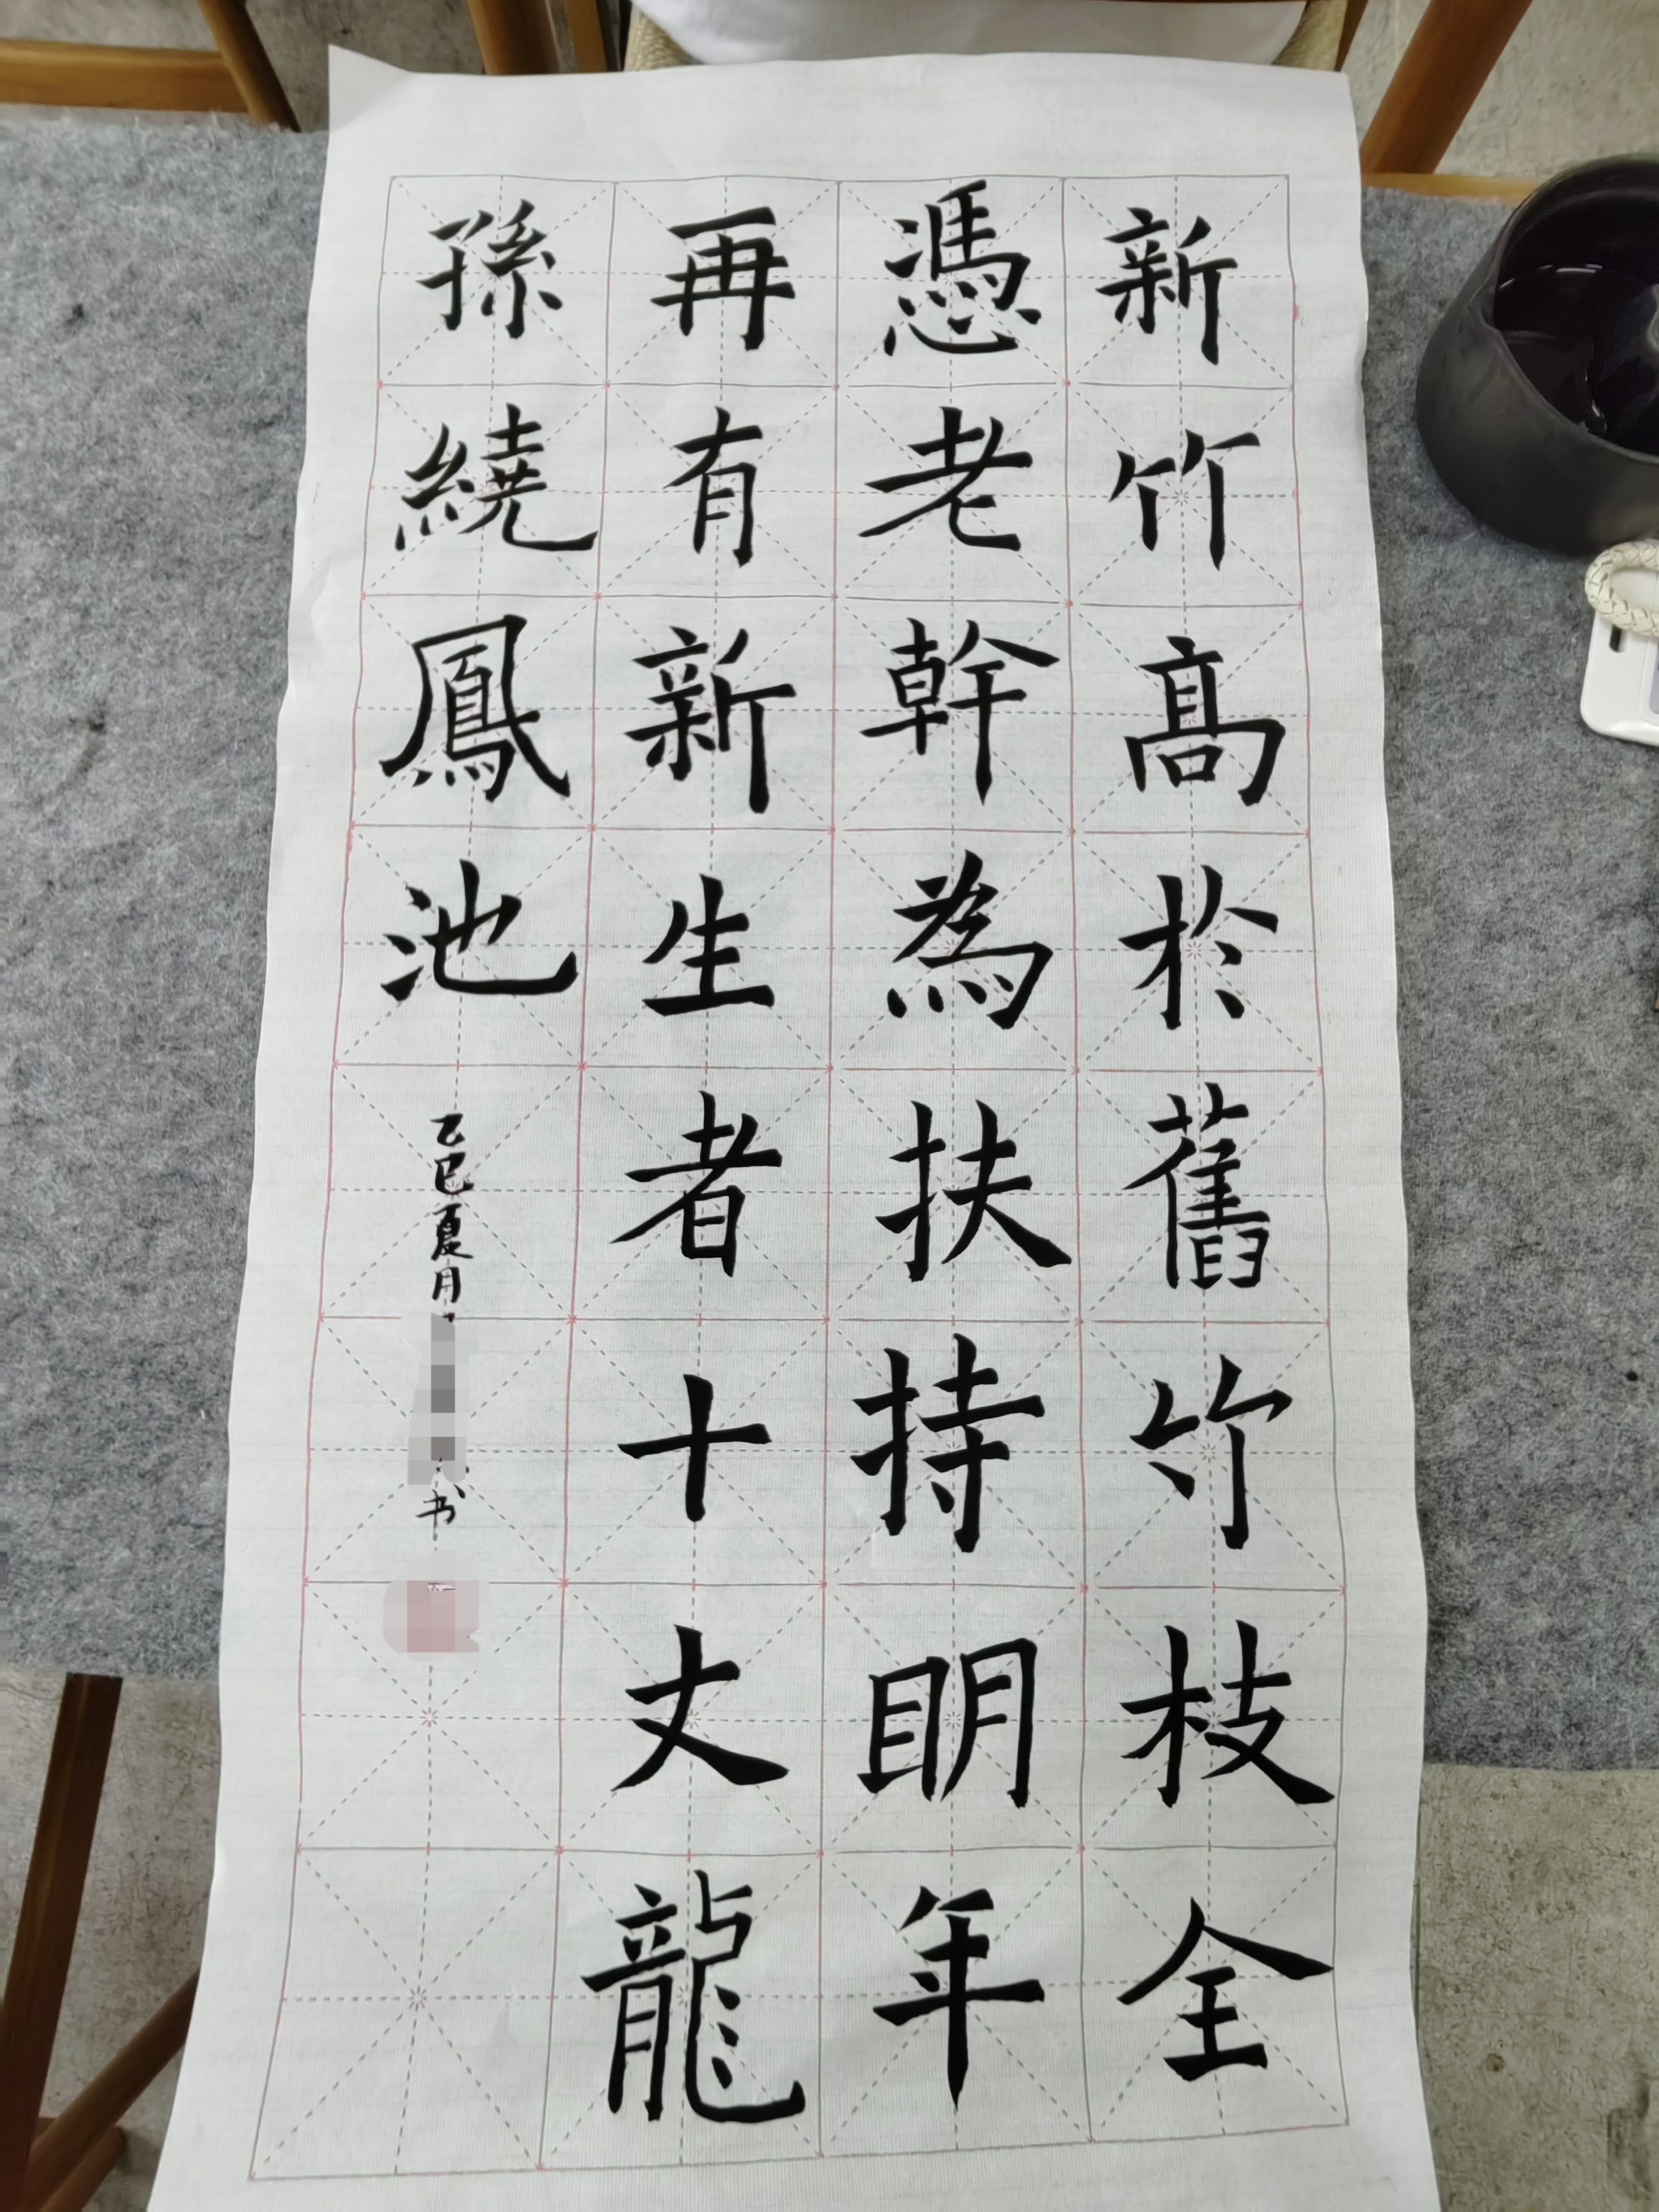 新竹髙於舊竹枝全
憑老幹為扶持明年
再有新生者十丈龍
孫繞鳳池
乙巳夏月
书